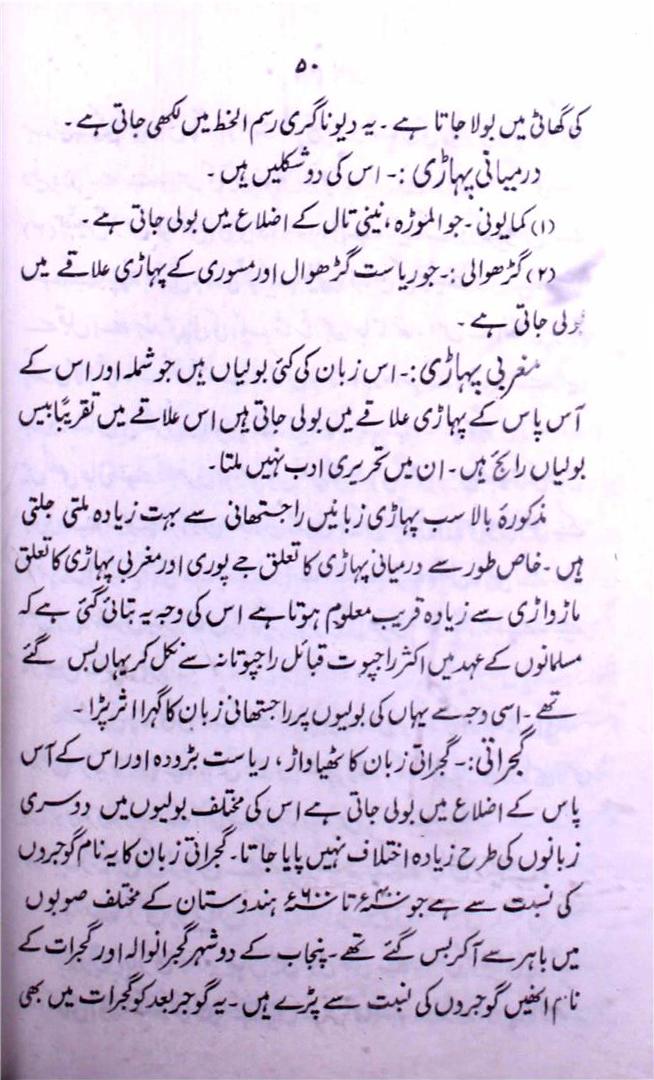 ۵۰
کی گھاٹی میں بولا جاتا ہے ۔ یہ دیوناگری رسم الخط میں لکھی جاتی ہے ۔
درمیانی پہاڑی :- اس کی دو شکلیں ہیں ۔
(۱) کمایونی ۔ جو الموڑہ ، نینی تال کے اضلاع میں بولی جاتی ہے ۔
(۲) گڑھوالی :- جو ریاست گڑھوال اور مسوری کے پہاڑی علاقے میں
بولی جاتی ہے ۔
مغربی پہاڑی :- اس زبان کی کئی بولیاں ہیں جو شملہ اور اس کے
آس پاس کے پہاڑی علاقے میں بولی جاتی ہیں اس علاقے میں تقریباً بیس
بولیاں رائج ہیں ۔ ان میں تحریری ادب نہیں ملتا ۔
مذکورۂ بالا سب پہاڑی زبانیں راجستھانی سے بہت زیادہ ملتی جلتی
ہیں ۔ خاص طور سے درمیانی پہاڑی کا تعلق جے پوری اور مغربی پہاڑی کا تعلق
ماڑواڑی سے زیادہ قریب معلوم ہوتا ہے اس کی وجہ یہ بتائی گئی ہے کہ
مسلمانوں کے عہد میں اکثر راجپوت قبائل راجپوتانہ سے نکل کر یہاں بس گئے
تھے ۔ اسی وجہ سے یہاں کی بولیوں پر راجستھانی زبان کا گہرا اثر پڑا ۔
گجراتی :- گجراتی زبان کاٹھیاواڑ ، ریاست بڑودہ اور اس کے آس
پاس کے اضلاع میں بولی جاتی ہے اس کی مختلف بولیوں میں دوسری
زبانوں کی طرح زیادہ اختلاف نہیں پایا جاتا ۔ گجراتی زبان کا یہ نام گوجروں
کی نسبت سے ہے جو ۴۰۰ء تا ۶۰۰ء ہندوستان کے مختلف صوبوں
میں باہر سے آکر بس گئے تھے ۔ پنجاب کے دو شہر گجرانوالہ اور گجرات کے
نام انھیں گوجروں کی نسبت سے پڑے ہیں ۔ یہ گوجر بعد کو گجرات میں بھی